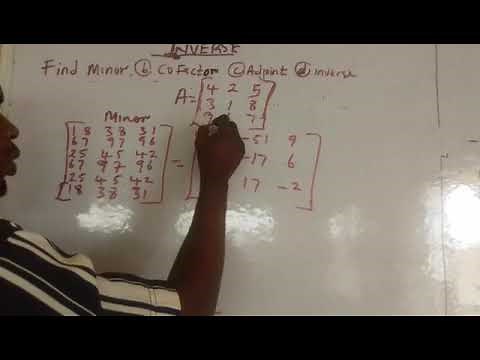 INVERSE
Find Minor, (b) Cofactor (c) Adjoint (d) inverse
A = [4 2 5
3 1 8
7]
Minor
[1 8 3 8 3 1
6 7 9 7 9 6
2 5 4 5 4 2
6 7 9 7 9 6
2 5 4 5 4 2
1 8 3 8 3 1]
= [-51 9
-17 6
17 -2]